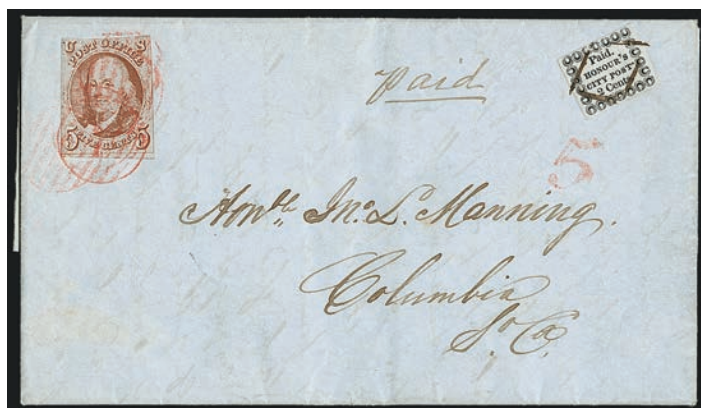 U S
POST OFFICE
5 FIVE CENTS 5
Paid
Paid.
HONOUR'S
CITY POST-
2 Cents
5
Honble. Jno. L. Manning.
Columbia
So Ca.